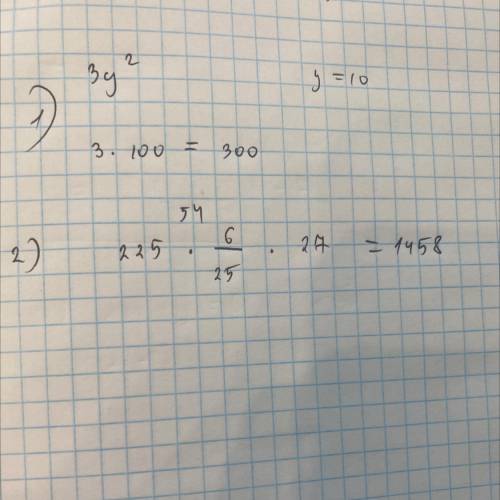 3y² y = 10
1)
3 · 100 = 300
54
2) 225 · 6/25 · 27 = 1458